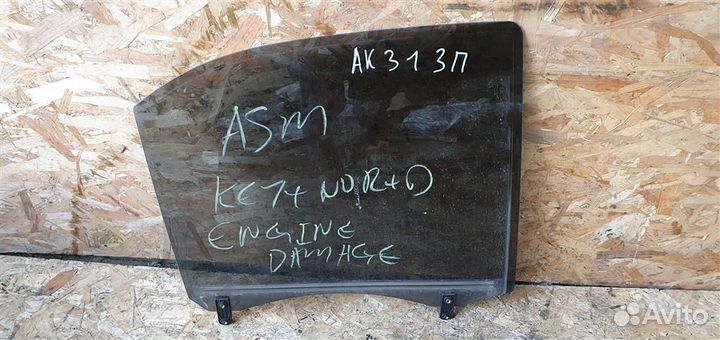 АК313П
ASM
KEY+ NO R+D
ENGINE
DAMAGE
Avito